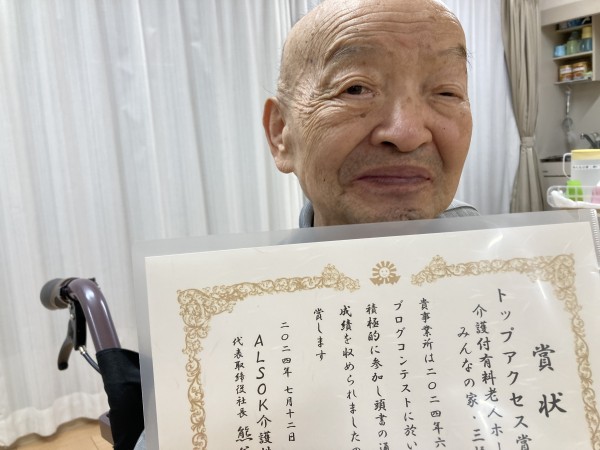 賞状
トップアクセス賞
介護付有料老人ホー
みんなの家・三
貴事業所は二〇二四年六
ブログコンテストに於い
積極的に参加し頭書の通
成績を収められましたの
賞します
二〇二四年七月十二日
ALSOK介護
代表取締役社長 熊